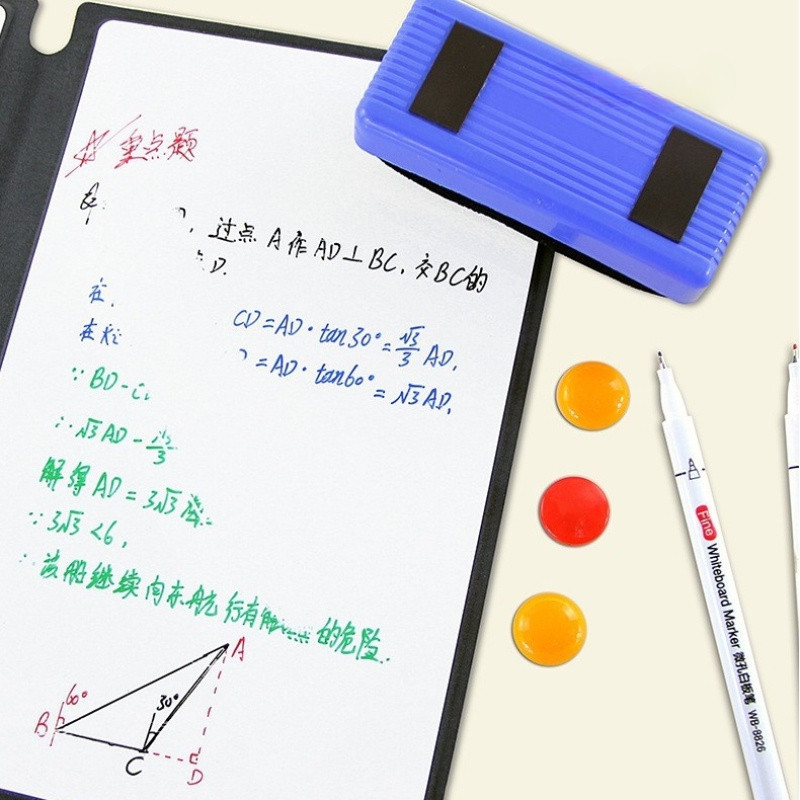 重点题
过点 A 作 AD⊥BC, 交BC的
D.
在
CD=AD·tan30°=√3/3 AD,
在
=AD·tan60°=√3AD,
∵BD-
∴√3AD-
解得 AD=3√3
∵3√3<6,
∴该船继续向东航行有 的危险.
A
60°
30°
B
C
D
Fine Whiteboard Marker 微孔白板笔 WB-8826